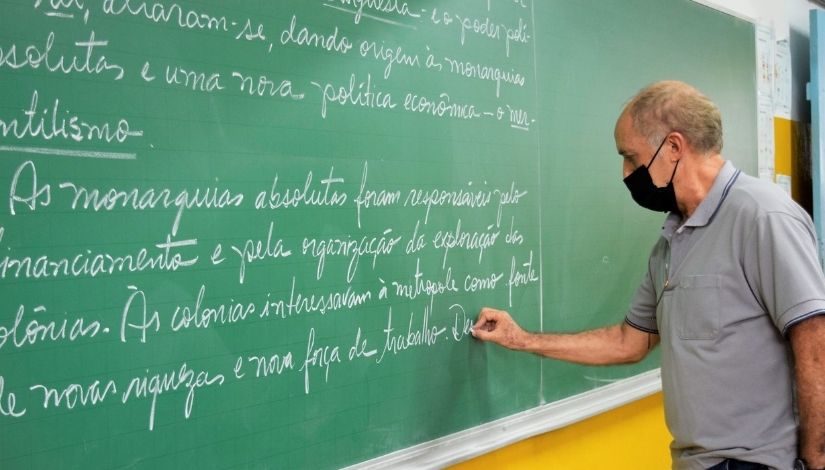 aliaram-se, dando origem às monarquias
solutas e uma nova política econômica - o mer-
ntilismo.
As monarquias absolutas foram responsáveis pelo
inanciamento e pela organização da exploração das
olônias. As colonias interessavam à metropole como fonte
de novas riquezas e nova força de trabalho. De